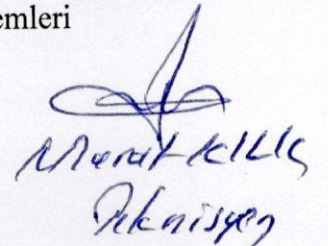 emleri
Murat KILIÇ
Teknisyen